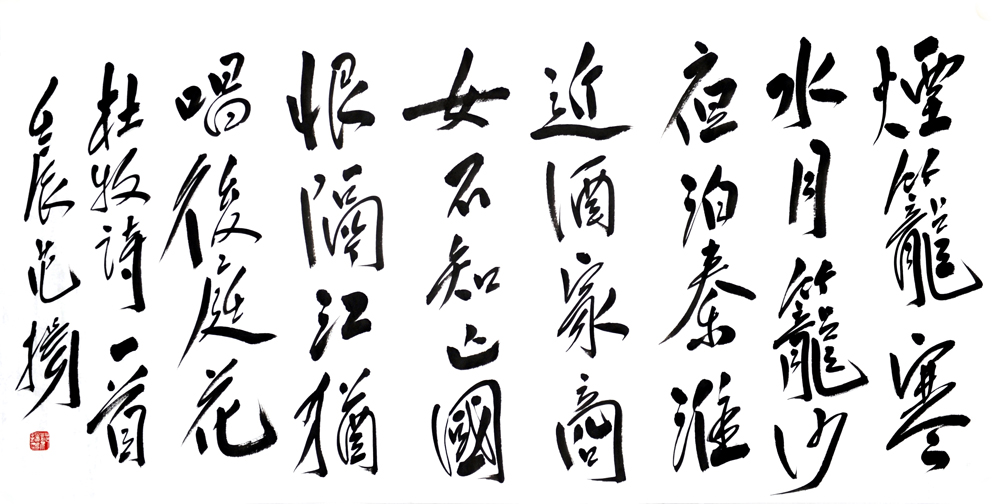 煙籠寒
水月籠沙
夜泊秦淮
近酒家商
女不知亡國
恨隔江猶
唱後庭花
杜牧詩一首
壬辰范揚